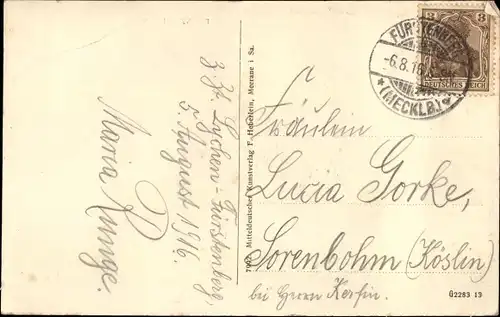 z. Zt. Lychen-Fürstenberg,
5. August 1916.
Maria Runge.
7092 Mitteldeutscher Kunstverlag F. Haberlein, Meerane i. Sa.
3 3
DEUTSCHES REICH
-6.8.16
(MECKLB)
Fräulein
Lucia Gorke,
Sorenbohm (Köslin)
bei Herrn
G2283 13